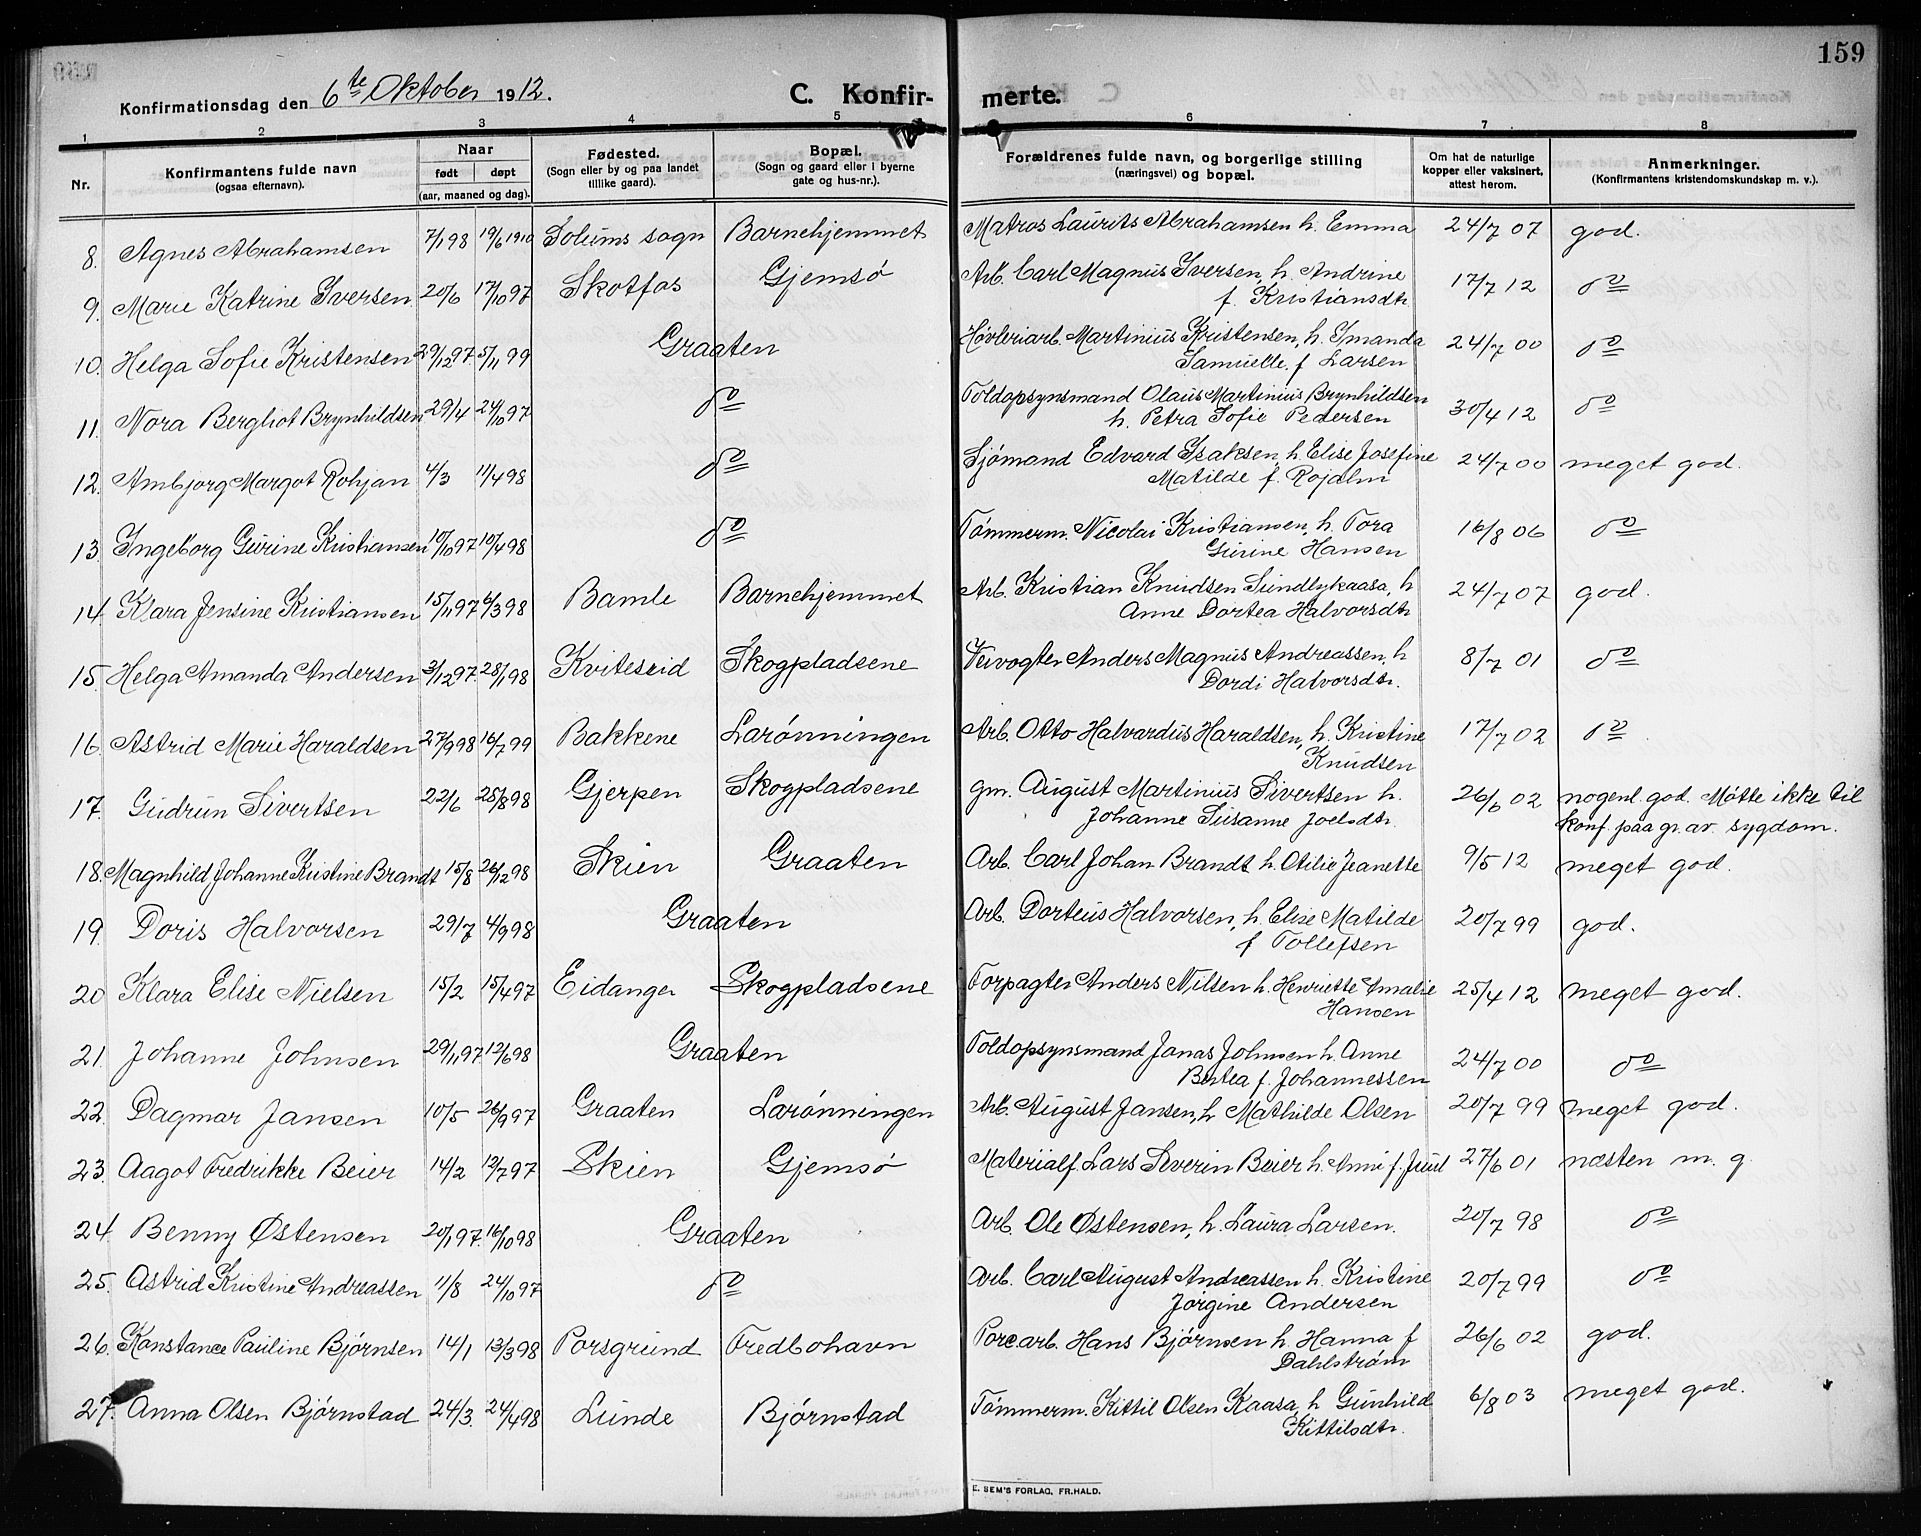 159
Konfirmationsdag den 6te Oktober 1912.
C. Konfir- merte.
1 2 3 4 5 6 7 8
Nr.
Konfirmantens fulde navn
(ogsaa efternavn).
Naar
født døpt
(aar, maaned og dag).
Fødested.
(Sogn eller by og paa landet
tillike gaard).
Bopæl.
(Sogn og gaard eller i byerne
gate og hus-nr.).
Forældrenes fulde navn, og borgerlige stilling
(næringsvei) og bopæl.
Om hat de naturlige
kopper eller vaksinert,
attest herom.
Anmerkninger.
(Konfirmantens kristendomskundskap m. v.).
8. Agnes Abrahamsen 7/1 98 19/6 1910 Solums sogn Barnehjemmet Matros Laurits Abrahamsen h. Emma 24/7 07 god.
9. Marie Katrine Iversen 20/6 17/10 97 Skotfos Gjemsø Arb. Carl Magnus Iversen, h. Andrine
f. Kristiansdtr 17/7 12 do
10. Helga Sofie Kristensen 29/12 97. 5/11 99 Graaten Høvleriarb. Martinius Kristensen, h. Imanda
Samuelle, f Larsen 24/7 00 do
11. Nora Bergliot Brynhildsen 29/4 24/10 97 do Toldopsynsmand Olaus Martinius Brynhildsen
h. Petra Sofie Pedersen 30/4 12 do
12. Ambjørg Margot Rohjan 4/3 11/4 98 do Sjømand Edvard Isaksen, h Elise Josefine
Matilde f. Rojahn 24/7 00 meget god.
13 Ingeborg Gurine Kristiansen 10/10 97 10/4 98 do Tømmerm. Nicolai Kristiansen, h. Tora
Gurine Hansen 16/8 06 do
14. Klara Jensine Kristiansen 15/11 97 6/3 98 Bamle Barnehjemmet Arb. Kristian Knudsen Sundlykaasa, h
Anne Dortea Halvorsdtr 24/7 07 god.
15. Helga Amanda Andersen 3/12 97. 28/11 98 Kviteseid Skogpladsene Veivogter Anders Magnus Andreassen, h
Dordi Halvorsdtr. 8/7 01 do
16. Astrid Marie Haraldsen 27/9 98 16/7 99 Bakkene Larønningen Arb. Otto Halvardus Haraldsen, h. Kristine
Knudsen 17/7 02 do
17. Gudrun Sivertsen 22/6 28/8 98 Gjerpen Skogpladsene gm. August Martinius Sivertsen h.
Johanne Susanne Joelsdtr. 26/6 02 nogenl. god. Møtte ikke til
konf. paa gr. av sygdom.
18. Magnhild Johanne Kristine Brandt 15/8 26/12 98 Skien Graaten Arb. Carl Johan Brandt h. Otilie Jeanette 9/5 12 meget god.
19. Doris Halvorsen 29/7 4/9 98 Graaten Arb. Dorteus Halvorsen, h. Elise Matilde
f Tollefsen 20/7 99 god.
20 Klara Elise Nielsen 15/2 15/4 97 Eidanger Skogpladsene Forpagter Anders Nilsen h. Henriette Amalie
Hansen 25/4 12 meget god.
21. Johanne Johnsen 29/11 97 12/6 98 Graaten Toldopsynsmand Jonas Johnsen h. Anne
Bertea f. Johannessen 24/7 00 do
22. Dagmar Jansen 10/5 26/9 97 Graaten Larønningen Arb. August Jansen, h Mathilde Olsen 20/7 99 meget god.
23. Aagot Fredrikke Beier 14/2 12/7 97 Skien Gjemsø Materialf. Lars Severin Beier h. Anne f. Juul 27/6 01 næsten m. g
24. Benny Østensen 20/1 97. 16/10 98 Graaten Arb. Ole Østensen, h. Laura Larsen. 20/7 98 do
25. Astrid Kristine Andreassen 11/8 24/10 97 do Arb. Carl August Andreassen h. Kristine
Jørgine Andersen 20/7 99 do
26. Konstance Pauline Bjørnsen 14/1 13/3 98 Porsgrund Fredbohavn Porc.arb. Hans Bjørnsen h. Hanna f
Dahlstrøm 26/6 02 god.
27. Anna Olsen Bjørnstad 24/3. 24/4 98 Lunde Bjørnstad Tømmerm. Kittil Olsen Kaasa, h Gunhild
Kittilsdtr. 6/8 03 meget god.
E. SEM'S FORLAG, FR.HALD.